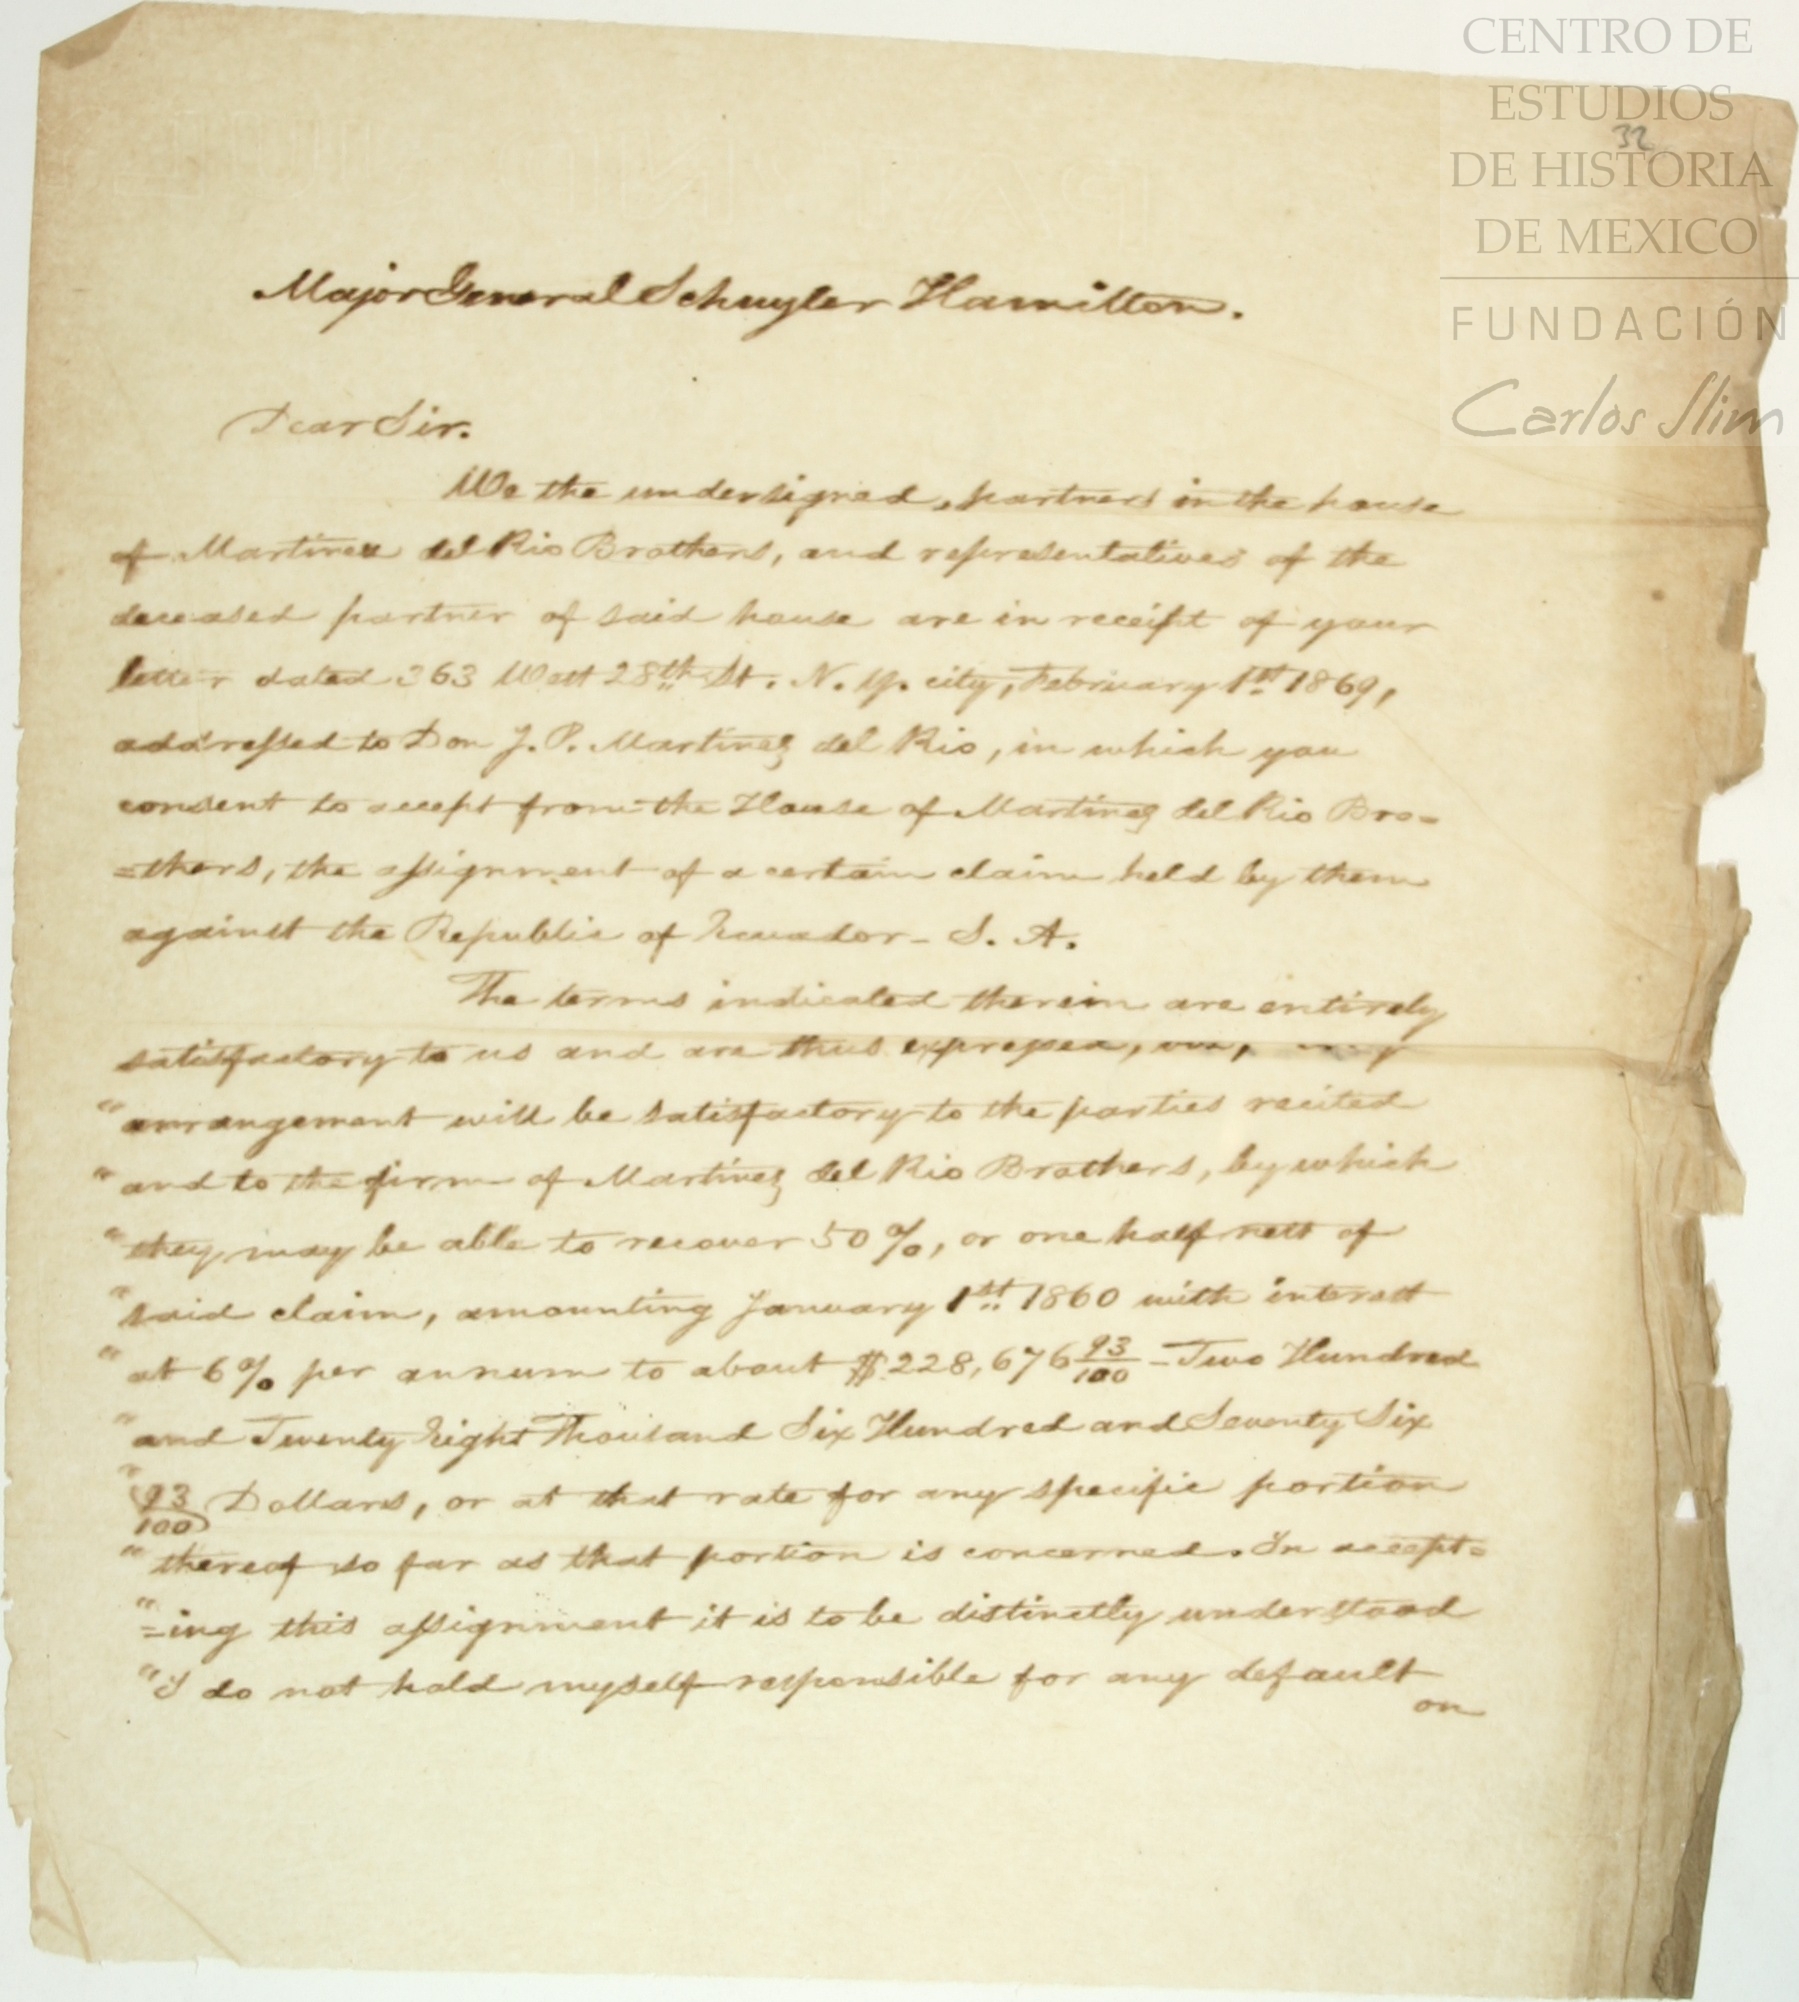 CENTRO DE
ESTUDIOS
DE HISTORIA
DE MEXICO
FUNDACIÓN
Carlos Slim
32
Major General Schuyler Hamilton.
Dear Sir.
We the undersigned, partners in the house
of Martinez del Rio Brothers, and representatives of the
deceased partner of said house are in receipt of your
letter dated 363 West 28th St. N. Y. city, February 1st 1869,
addressed to Don J. P. Martinez del Rio, in which you
consent to accept from the House of Martinez del Rio Bro-
=thers, the assignment of a certain claim held by them
against the Republic of Ecuador - S. A.
The terms indicated therein are entirely
satisfactory to us and are thus expressed,
" arrangement will be satisfactory to the parties recited
" and to the firm of Martinez del Rio Brothers, by which
" they may be able to recover 50%, or one half nett of
" said claim, amounting January 1st 1860 with interest
" at 6% per annum to about $228,676 93/100 - Two Hundred
" and Twenty Eight Thousand Six Hundred and Seventy Six
" 93/100 Dollars, or at that rate for any specific portion
" thereof so far as that portion is concerned. In accept=
" =ing this assignment it is to be distinctly understood
" I do not hold myself responsible for any default
on